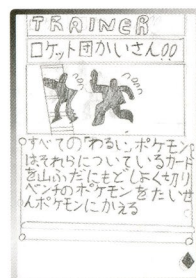 TRAINER
ロケット団かいさん!!
すべての「わるい」ポケモン
はそれらについているカード
を山ふだにもどしよく切り
ベンチのポケモンをたいせ
んポケモンにかえる